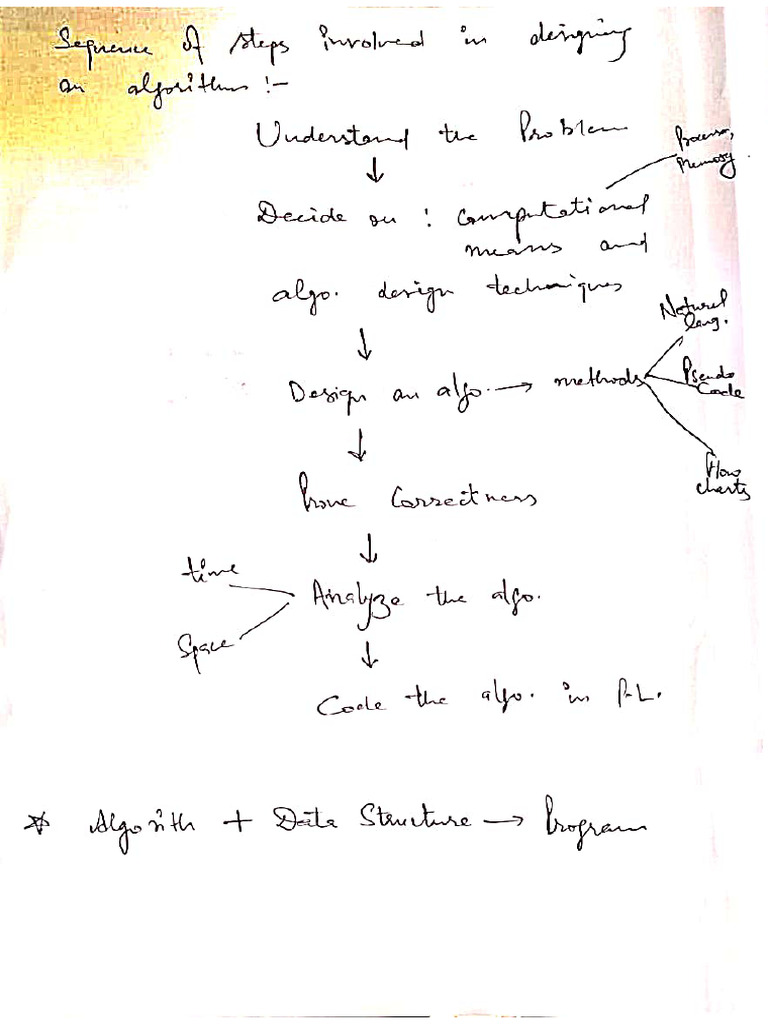 Sequence of steps involved in designing
an algorithm :-
Understand the Problem
↓
Processor,
Memory
Decide on : Computational
means and
algo. design techniques
↓
Natural
lang.
Design an algo. → methods
Pseudo
Code
Flow
charts
↓
Prove Correctness
↓
time
Analyze the algo.
Space
↓
Code the algo. in P.L.
* Algorith + Data Structure → Program